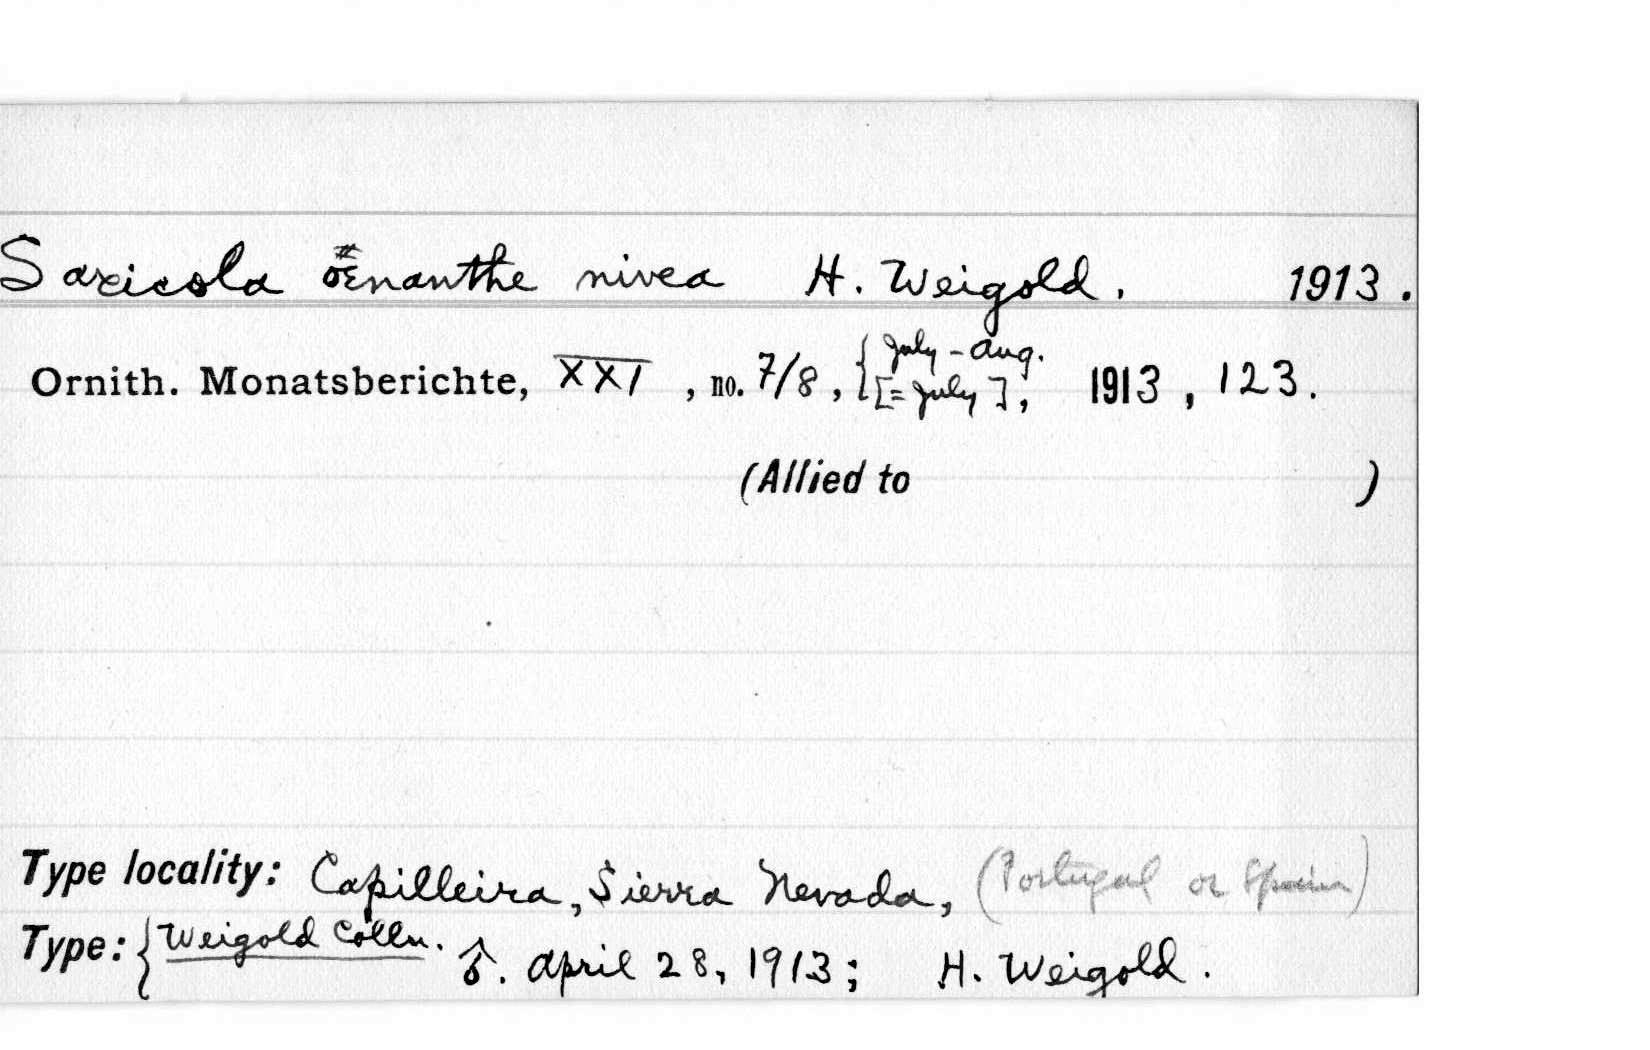 Saxicola œnanthe nivea H. Weigold. 1913.
Ornith. Monatsberichte, XXI, no. 7/8, { July-Aug. [= July], 1913, 123.
(Allied to )
Type locality: Capilleira, Sierra Nevada, (Portugal or Spain)
Type: { Weigold Colln. ♂. April 28, 1913; H. Weigold.